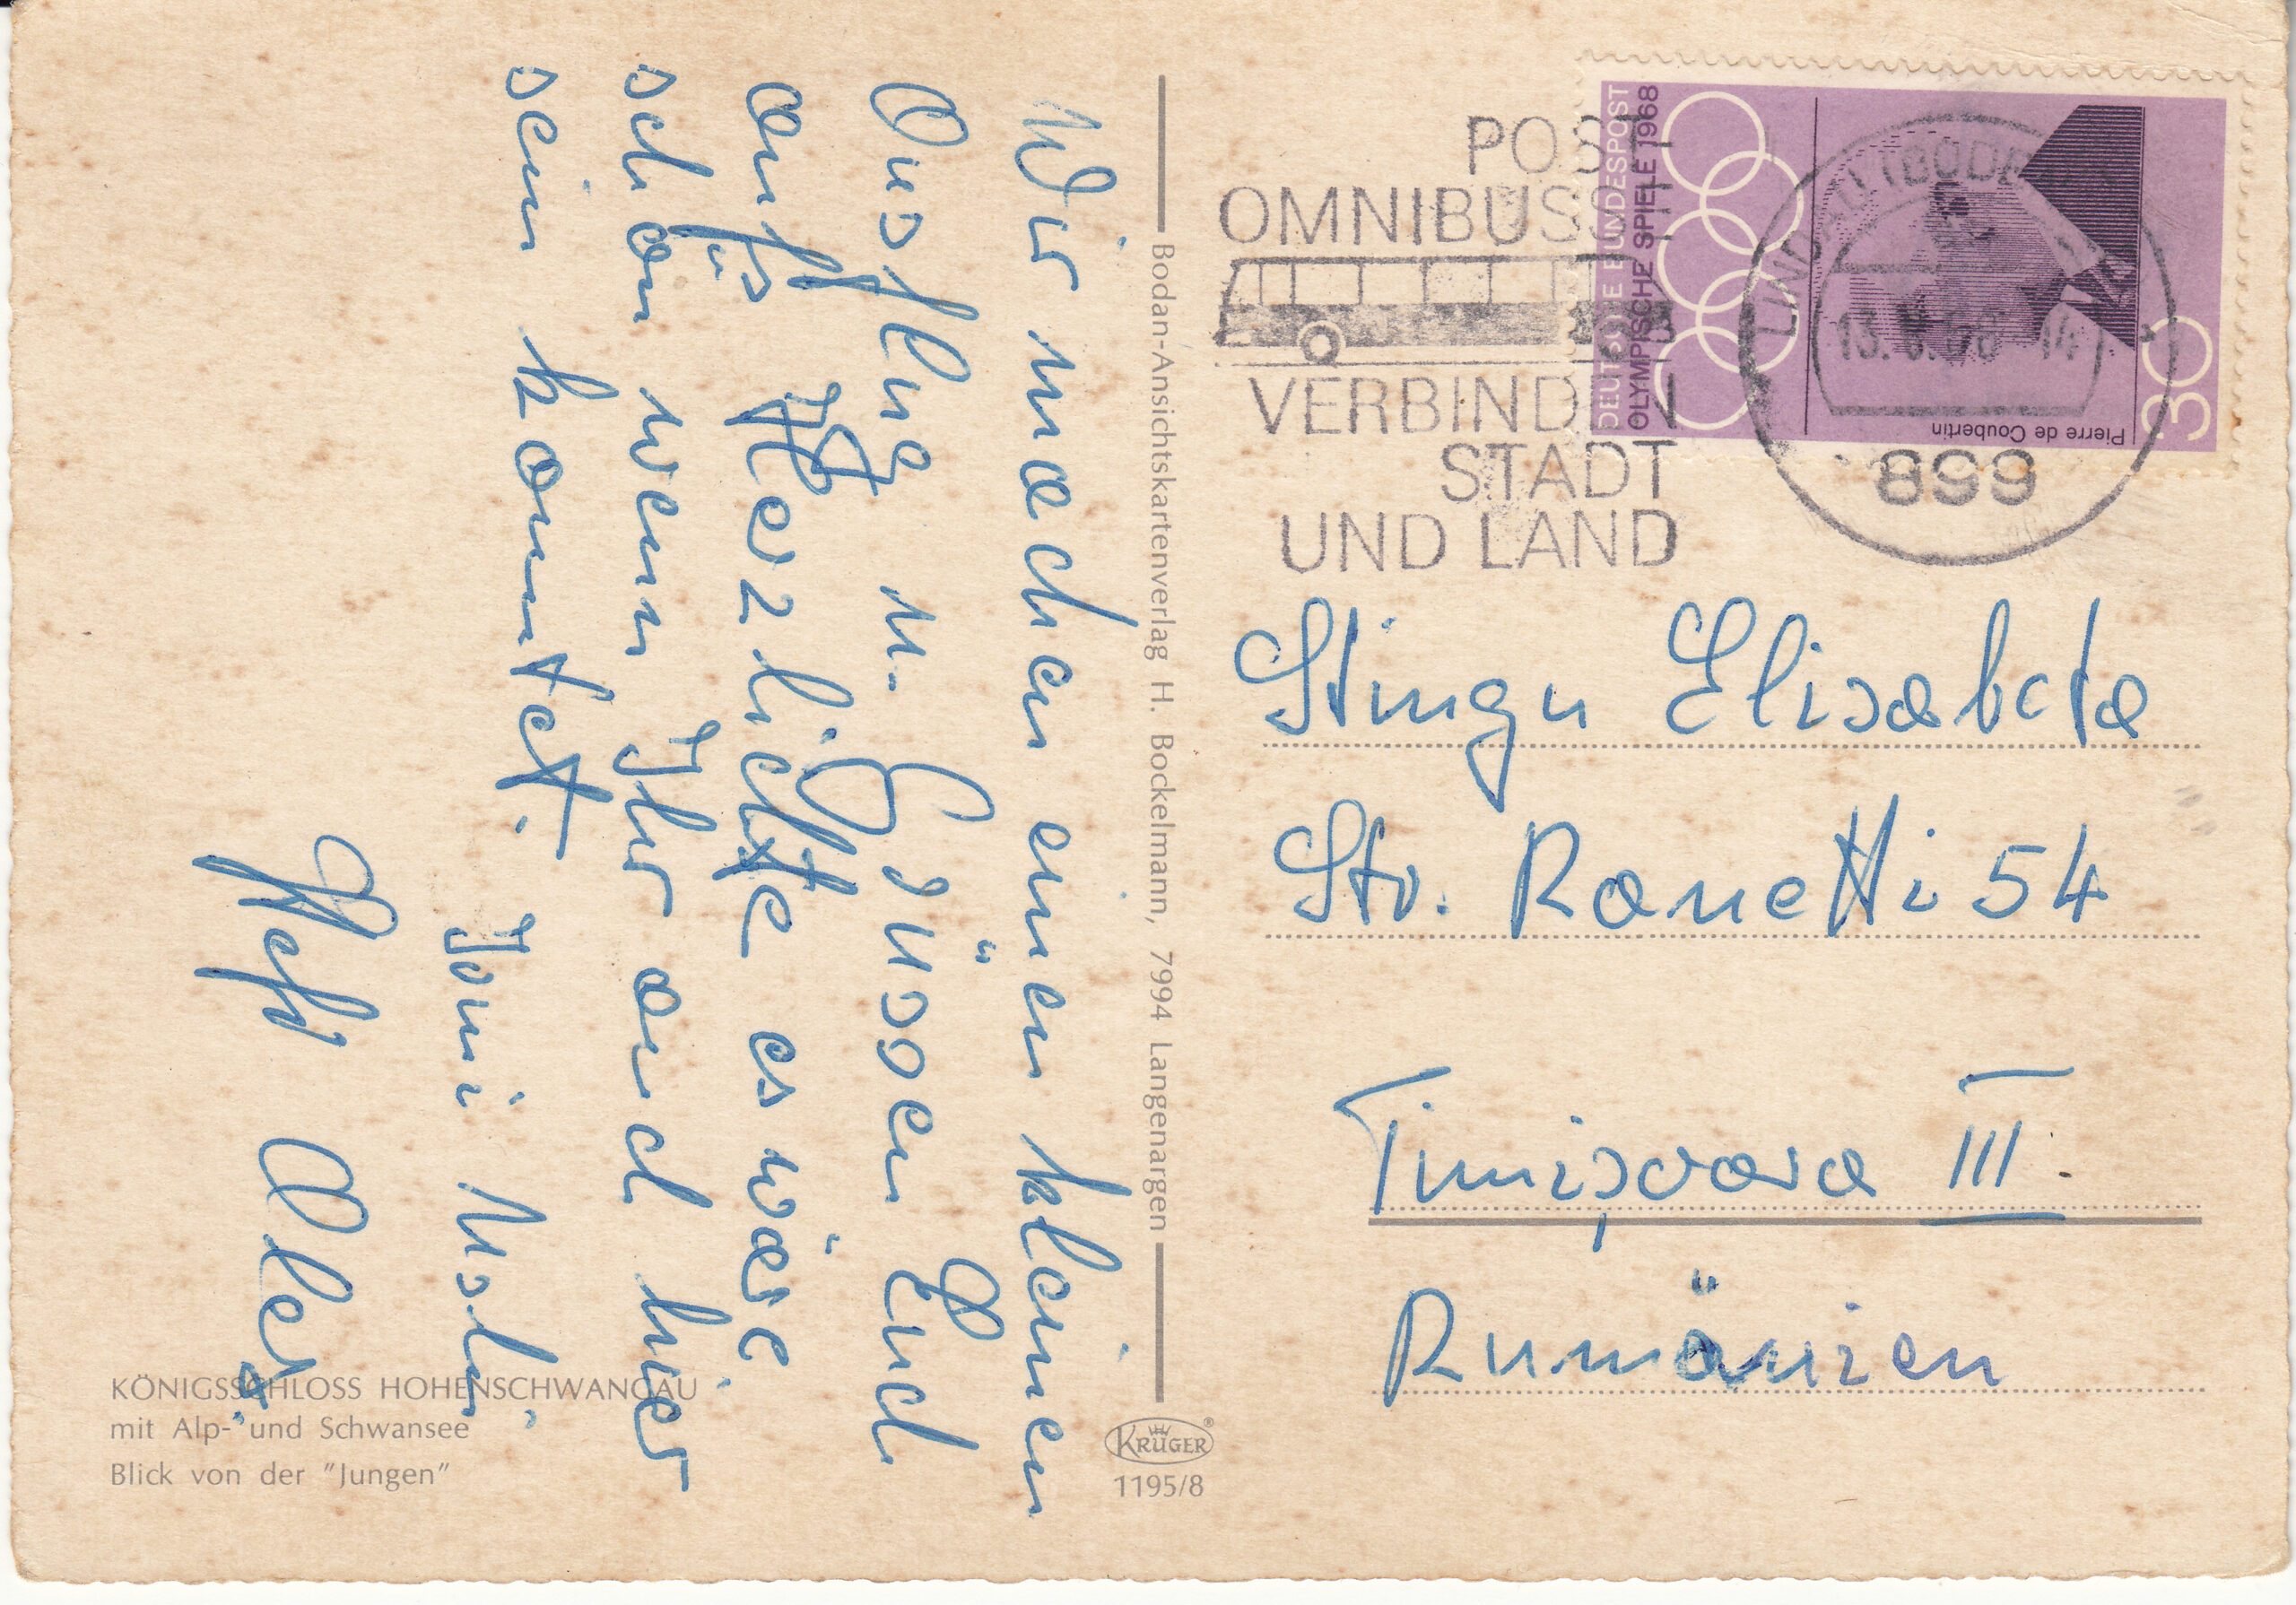 Wir machen einen kleinen
Ausflug u. Grüssen Euch
aufs Herzlichste es wäre
schön wenn Ihr auch hier
sein könntet.
Bodan-Ansichtskartenverlag H. Bockelmann, 7994 Langenargen
POST
OMNIBUSSE
VERBINDEN
STADT
UND LAND
DEUTSCHE BUNDESPOST
OLYMPISCHE SPIELE 1968
Pierre de Coubertin
30
LINDAU (BODENSEE)
899
Stingu Elisabeta
Str. Ronetti 54
Timişoara III.
Rumänien
KÖNIGSSCHLOSS HOHENSCHWANGAU
mit Alp- und Schwansee
Blick von der "Jungen"
KRÜGER®
1195/8